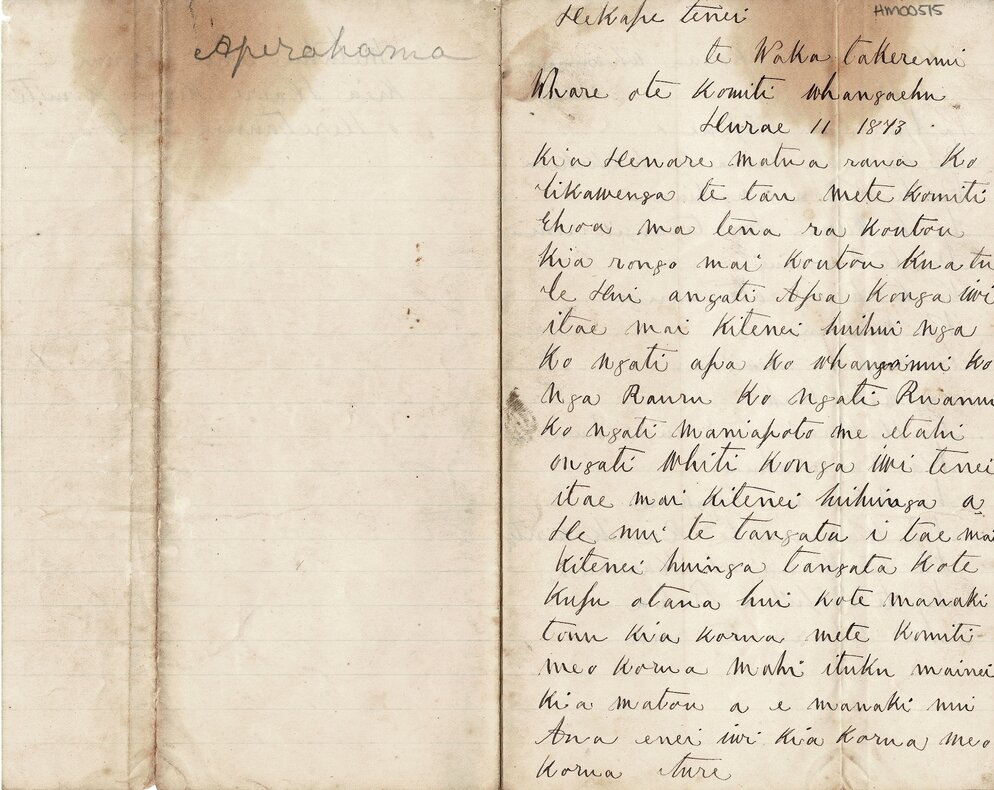 Aperahama
HM00515
He Kape tenei
te Waka takerenui
Whare ote Komiti Whangaehu
Hurae 11 1873.
Kia Henare matua rana Ko
tikawenga te tau mete Komiti
Ehoa ma tena ra Koutou
Kia rongo mai Koutou Kua tu
te Hui angati Apa Konga iwi
itae mai Kitenei huihui nga
Ko ngati apa Ko Whanganui Ko
Nga Rauru Ko ngati Ruanui
Ko ngati maniapoto me etahi
ongati Whiti Konga iwi tenei
itae mai Kitenei huihuinga a,
He nui te tangata i tae mai
Kitenei huinga tangata Kote
Kupu otana hui Kote manaki
tonu Kia Korua mete Komiti
meo Korua mahi ituku mainei
Kia matou a e manaki nui
Ana enei iwi Kia Korua, meo
Korua ture